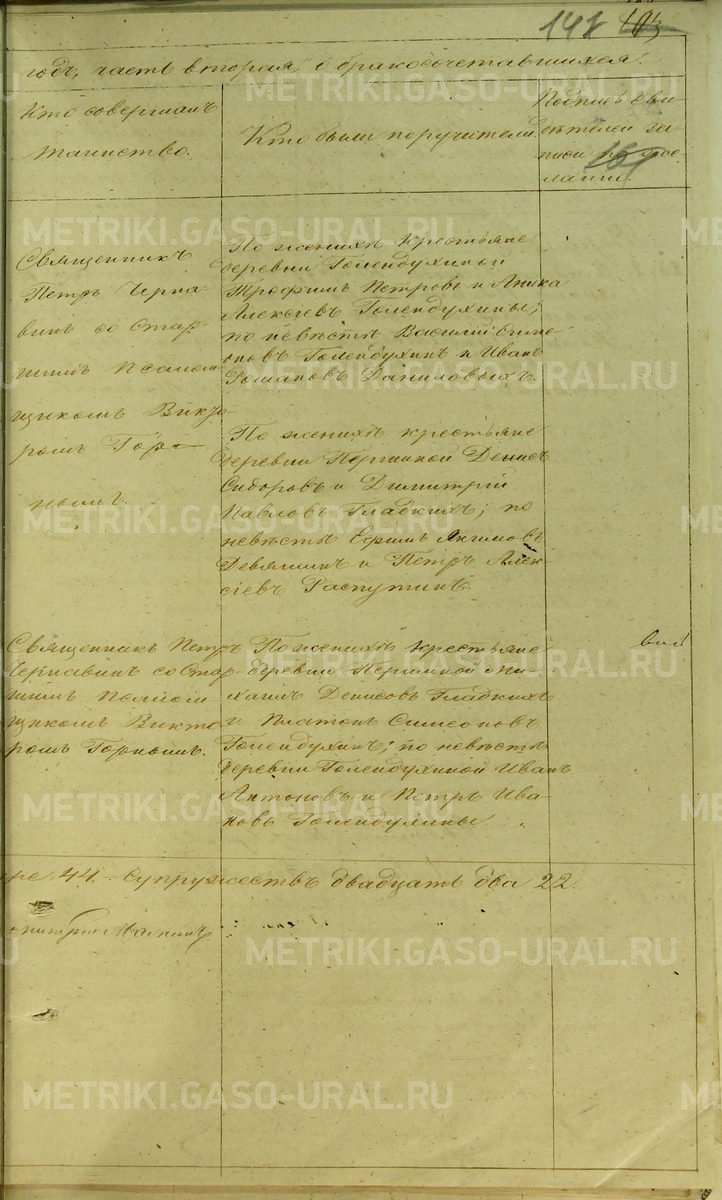 148 103
годъ, часть вторая о бракосочетавшихся.
Кто совершалъ
таинство.
Кто были поручители.
Подпись сви-
дѣтелей за-
писи по же-
ланію.
Священникъ
Петръ Черна-
винъ со Стар-
шимъ Псалом
щикомъ Викто
ромъ Гор-
нымъ.
По женихѣ крестьяне
деревни Голендухиной
Трофимъ Петровъ и Аника
Алексѣевъ Голендухины;
по невѣстѣ Василій Симе-
оновъ Голендухинъ и Иванъ
Романовъ Даниловыхъ.
По женихѣ крестьяне
деревни Першиной Денисъ
Сидоровъ и Димитрій
Павловъ Гладкихъ; по
невѣстѣ Ефимъ Якимовъ
Девяшинъ и Петръ Алек-
сѣевъ Распутинъ.
Священникъ Петръ
Чернавинъ со Стар-
шимъ Псалом
щикомъ Викто
ромъ Горнымъ.
По женихѣ крестьяне
деревни Першиной Ми-
хаилъ Денисовъ Гладкихъ
и Платонъ Симеоновъ
Голендухинъ; по невѣстѣ
деревни Голендухиной Иванъ
Антоновъ и Петръ Ива-
новъ Голендухины.
44. Супружествъ двадцать два 22.
METRIKI.GASO-URAL.RU